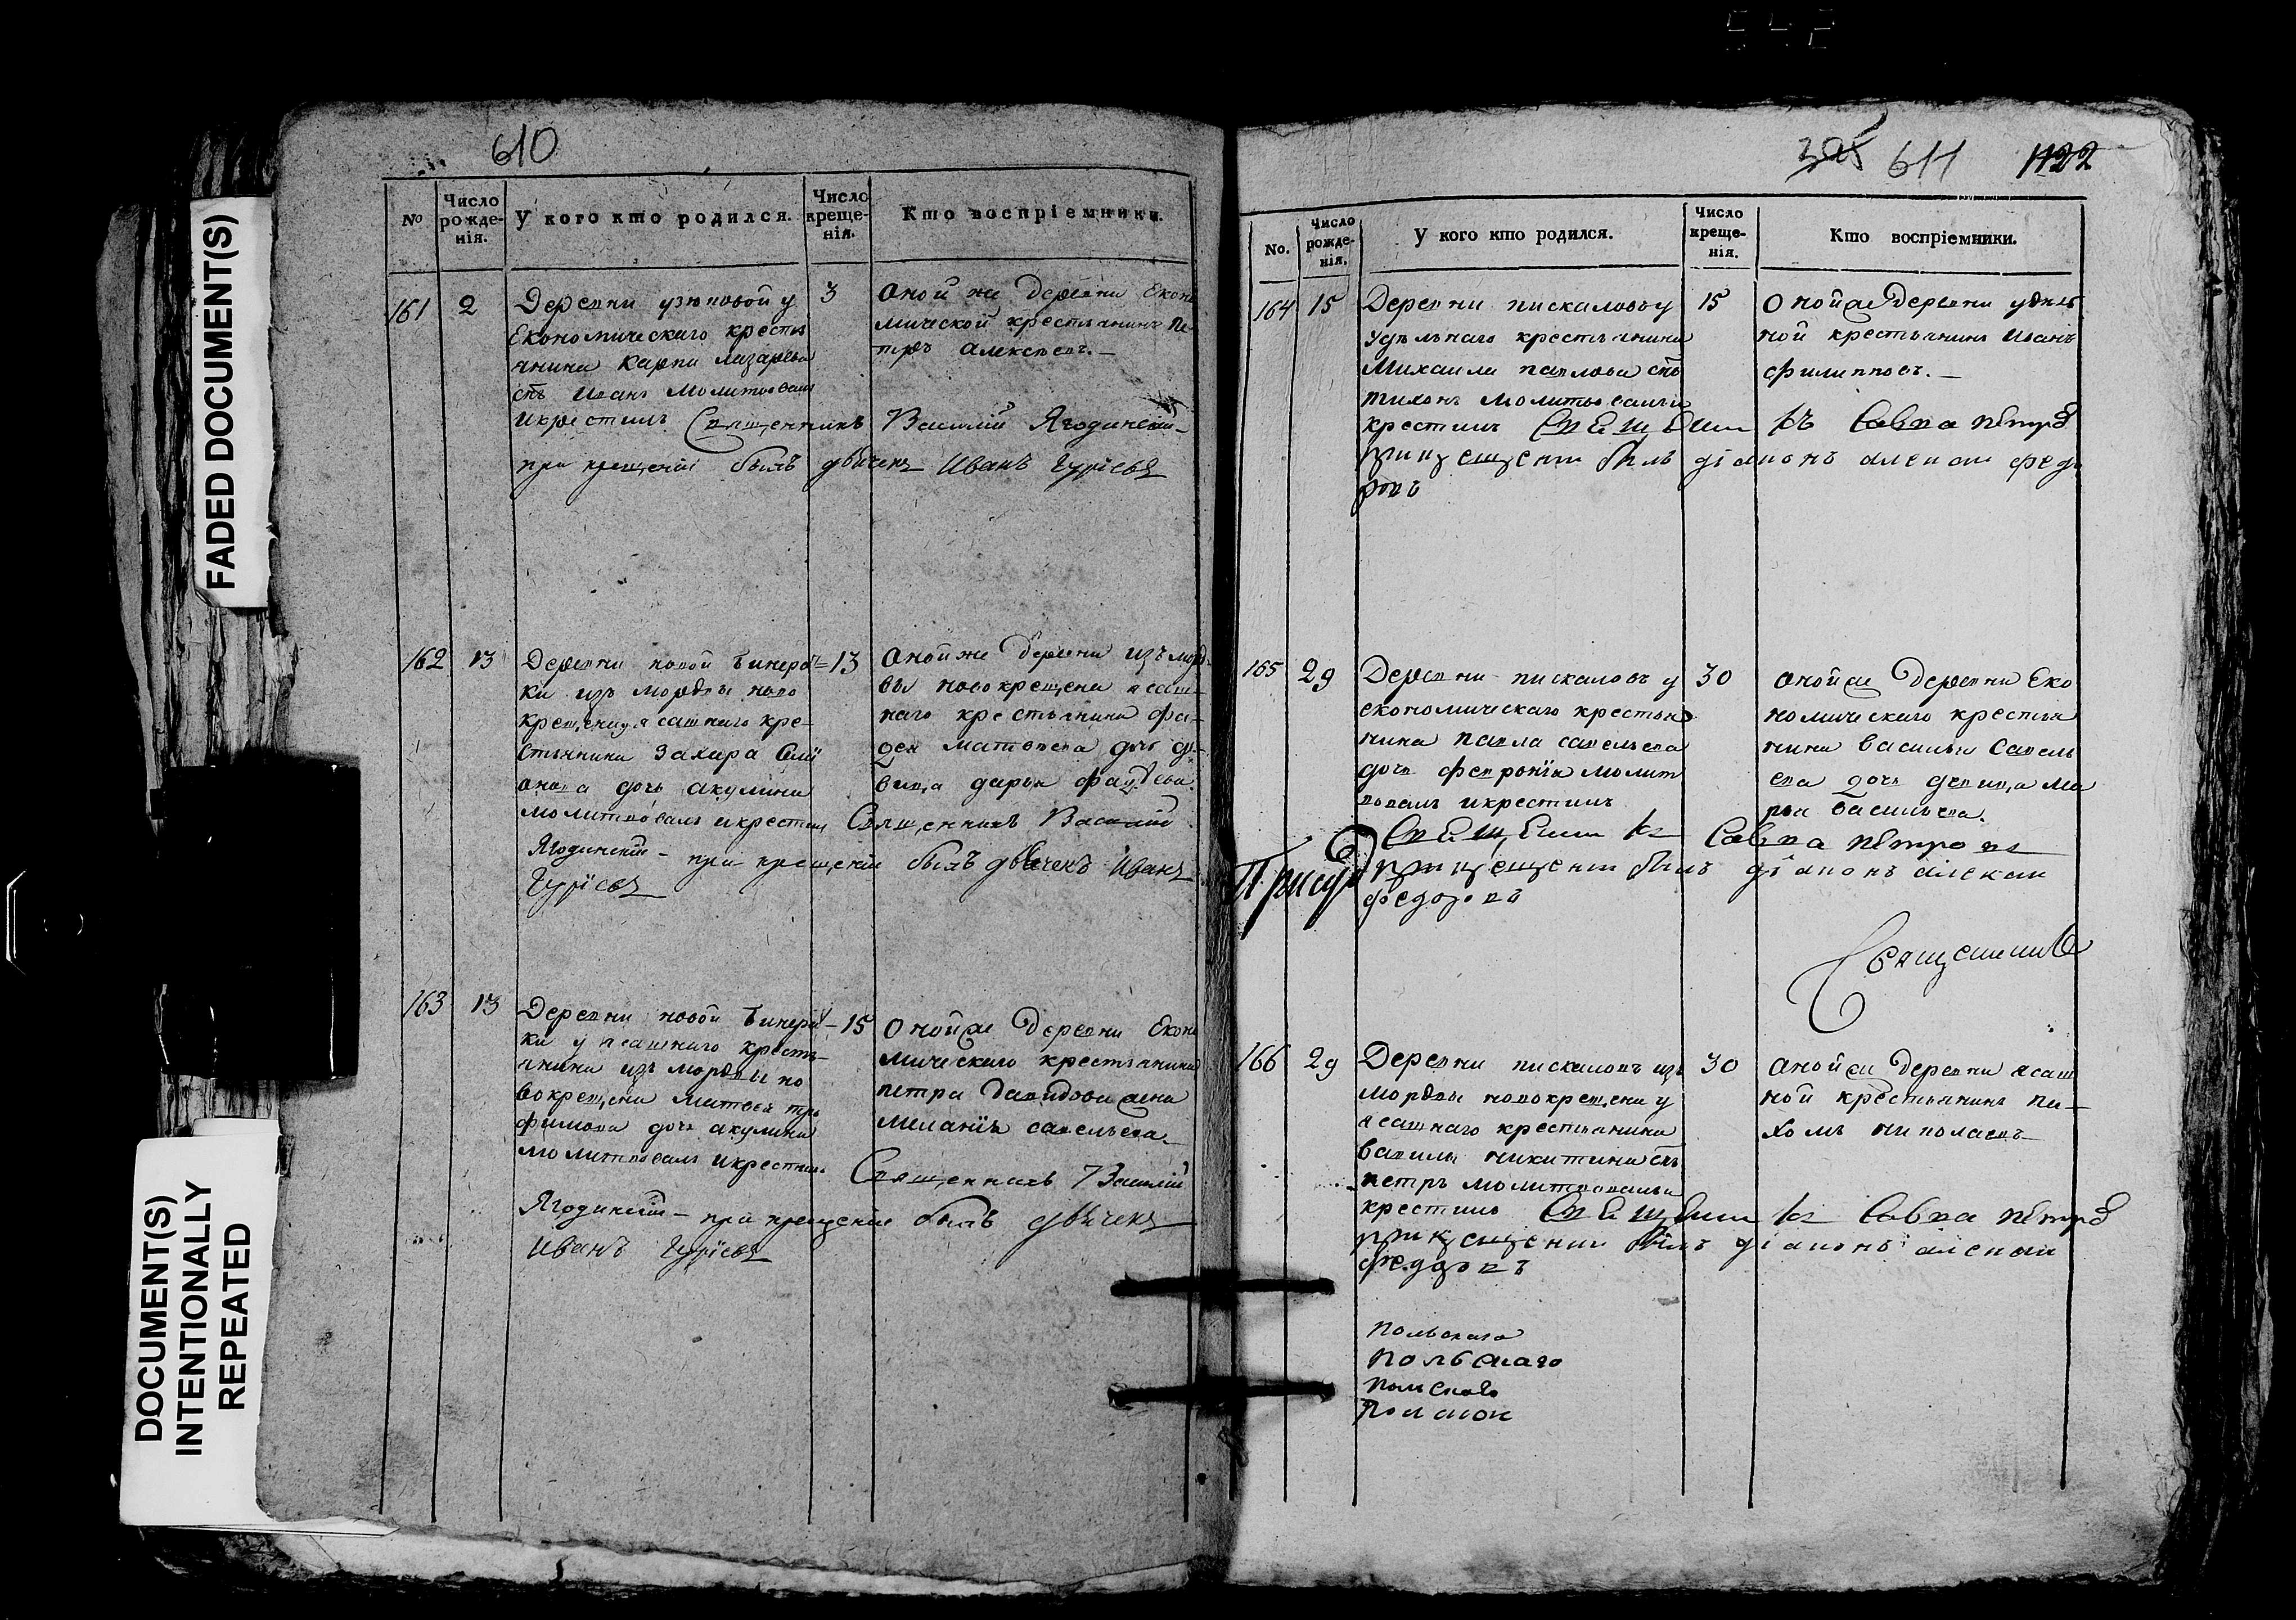 FADED DOCUMENT(S)
DOCUMENT(S)
INTENTIONALLY
REPEATED
610
No
Число рожденія.
У кого кто родился.
Число крещенія.
Кто воспріемники.
161 2
Деревни узюковой у
Економическаго кресть
янина Карпа Лазарева
снъ Иванъ Молитвовалъ
икрестилъ Священникъ Василій Ягодинскій
при крещеніи былъ дьячекъ Иванъ Гурїевъ
3
Оной же Деревни Економической крестьянинъ Петръ Алексѣевъ.
162 13
Деревни новой
ки изъ мордвы ново
крещена ясашнаго кре-
стьянина Захара Сими
онова дочь акулина
молитвовалъ икрестил Священникъ Василій
Ягодинскій - при крещеніи былъ дьячекъ Иванъ
Гурїевъ
13
Оной же Деревни изъ морд-
вы новокрещена ясаш-
наго крестьянина
матвеева дочь дѣ-
вица дарья
163 13
Деревни новой
ки у ясашнаго кресть-
янина изъ мордвы но
вокрещена Матвея тро
фимова дочь акулина
молитвовалъ икрестилъ Священникъ Василій
Ягодинскій - при крещеніи былъ дьячекъ
Иванъ Гурїевъ
15
Оной же Деревни Еконо
мическаго крестьянина
петра Давидова жена
меланїя савельева
395 611 1122
No.
Число рожденія.
У кого кто родился.
Число крещенія.
Кто воспріемники.
164 15
Деревни пискаловъ у
удѣльнаго крестьянина
Михаила павлова снъ
тихонъ молитвовалъ и
крестилъ Священникъ Савва петровъ
прикрещении былъ діаконъ алексѣи федо
ровъ
15
Оной же Деревни удѣль
ной крестьянинъ Иванъ
филипповъ.
165 29
Деревни пискаловъ у
економическаго крестья
нина павла савельева
дочь феврониїя молит
вовалъ икрестилъ
Священникъ Савва петровъ
прикрещении былъ діаконъ алексѣи
федоровъ
30
Оной же Деревни Еко
номическаго крестья
нина василья Савель
ева дочь девица ма
рья васильева.
Священникъ
166 29
Деревни пискаловъ изъ
мордвы новокрещена у
ясашнаго крестьянина
вавилы никитина снъ
петръ молитвовалъ и
крестилъ Священникъ Савва петровъ
прикрещении былъ діаконъ алексѣи
федоровъ
30
Оной же Деревни ясаш
ной крестьянинъ па-
хомъ николаевъ
польскаго
польскаго